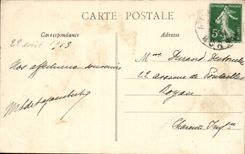 CARTE POSTALE
Correspondance
Adresse
22 avril 1913
Nos affectueux souvenirs
Mme Durand
22 avenue de Pontaillac
Royan
Charente Infre
5